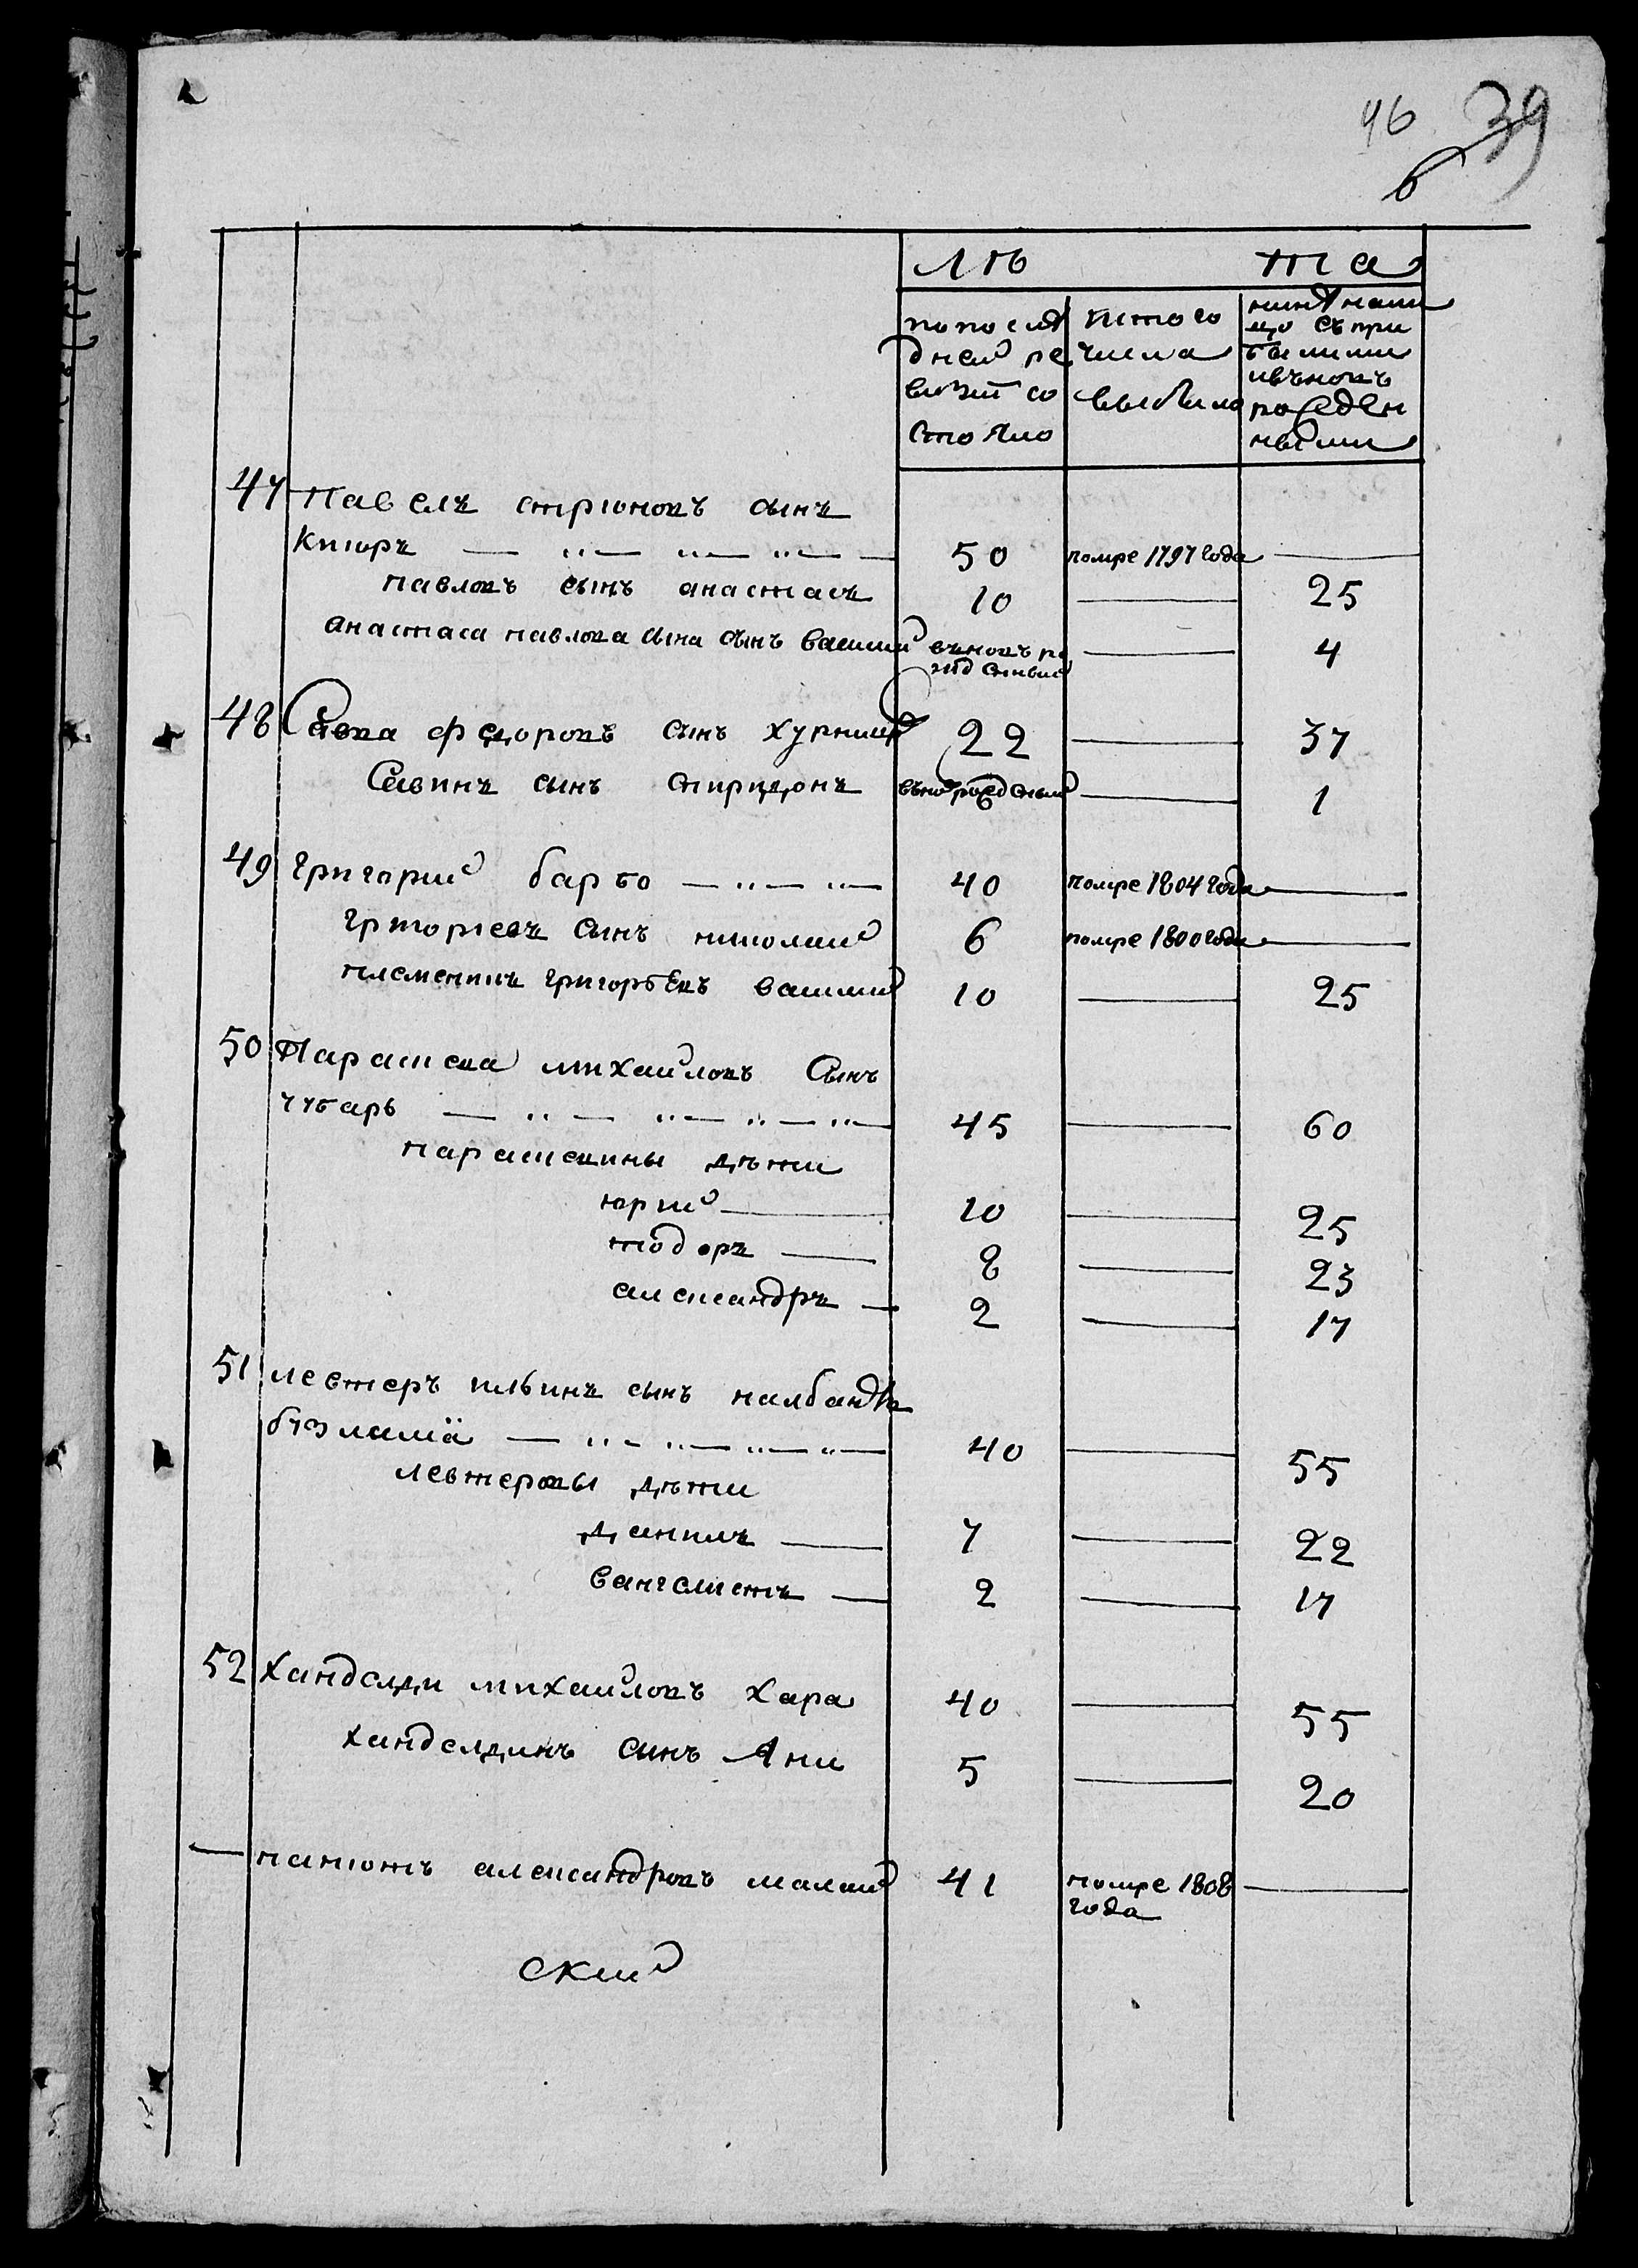 46 39
6
лѣ та
по послѣ
дней ре
визіи со
стояло
изтого
числа
выбыло
нынѣ нали
цо съ при
былими
ивъновь
рожден
ными
47 Павелъ стріоновъ сынъ
Кпіоръ — 50 помре 1797 года —
павловъ сынъ анастасъ 10 — 25
анастаса павлова сына сынъ василий въновь ро — 4
жденный
48 Савва федоровъ сынъ хурниер 22 — 37
Савинъ сынъ спиридонъ вънов рожденный — 1
49 григорий барбо — 40 помре 1804 года —
григориевъ сынъ николай 6 помре 1800 года —
племеникъ григорьевъ василий 10 — 25
50 Парасцева михайловъ Сынъ
чубарь — 45 — 60
парасцевины дѣти
юрий — 10 — 25
тодоръ — 8 — 23
александръ — 2 — 17
51 левтеръ ильинъ сынъ налбандъ
бузлама — 40 — 55
левтеровы дѣти
данилъ — 7 — 22
вангелистъ — 2 — 17
52 Ханделди михайловъ Хара 40 — 55
ханделдинъ сынъ Ани 5 — 20
— паніотъ александровъ малай 41 помре 1808 —
года
ский